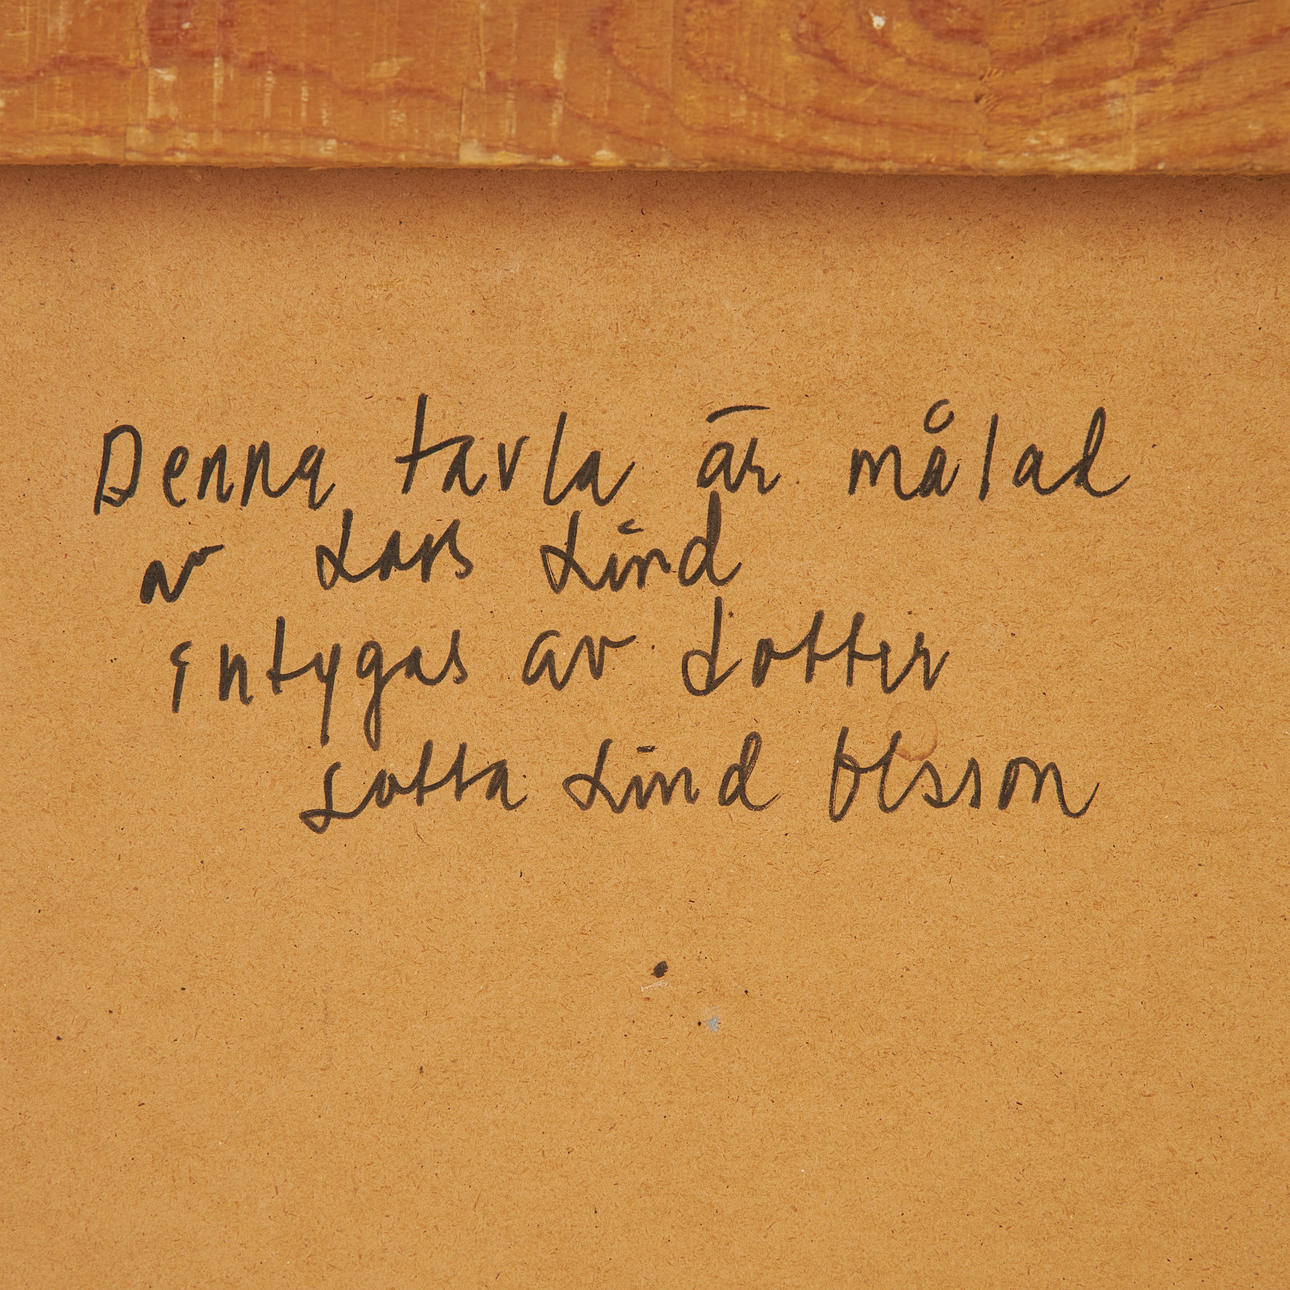 Denna tavla är målad
av Lars Lind
intygas av dotter
Lotta Lind Olsson